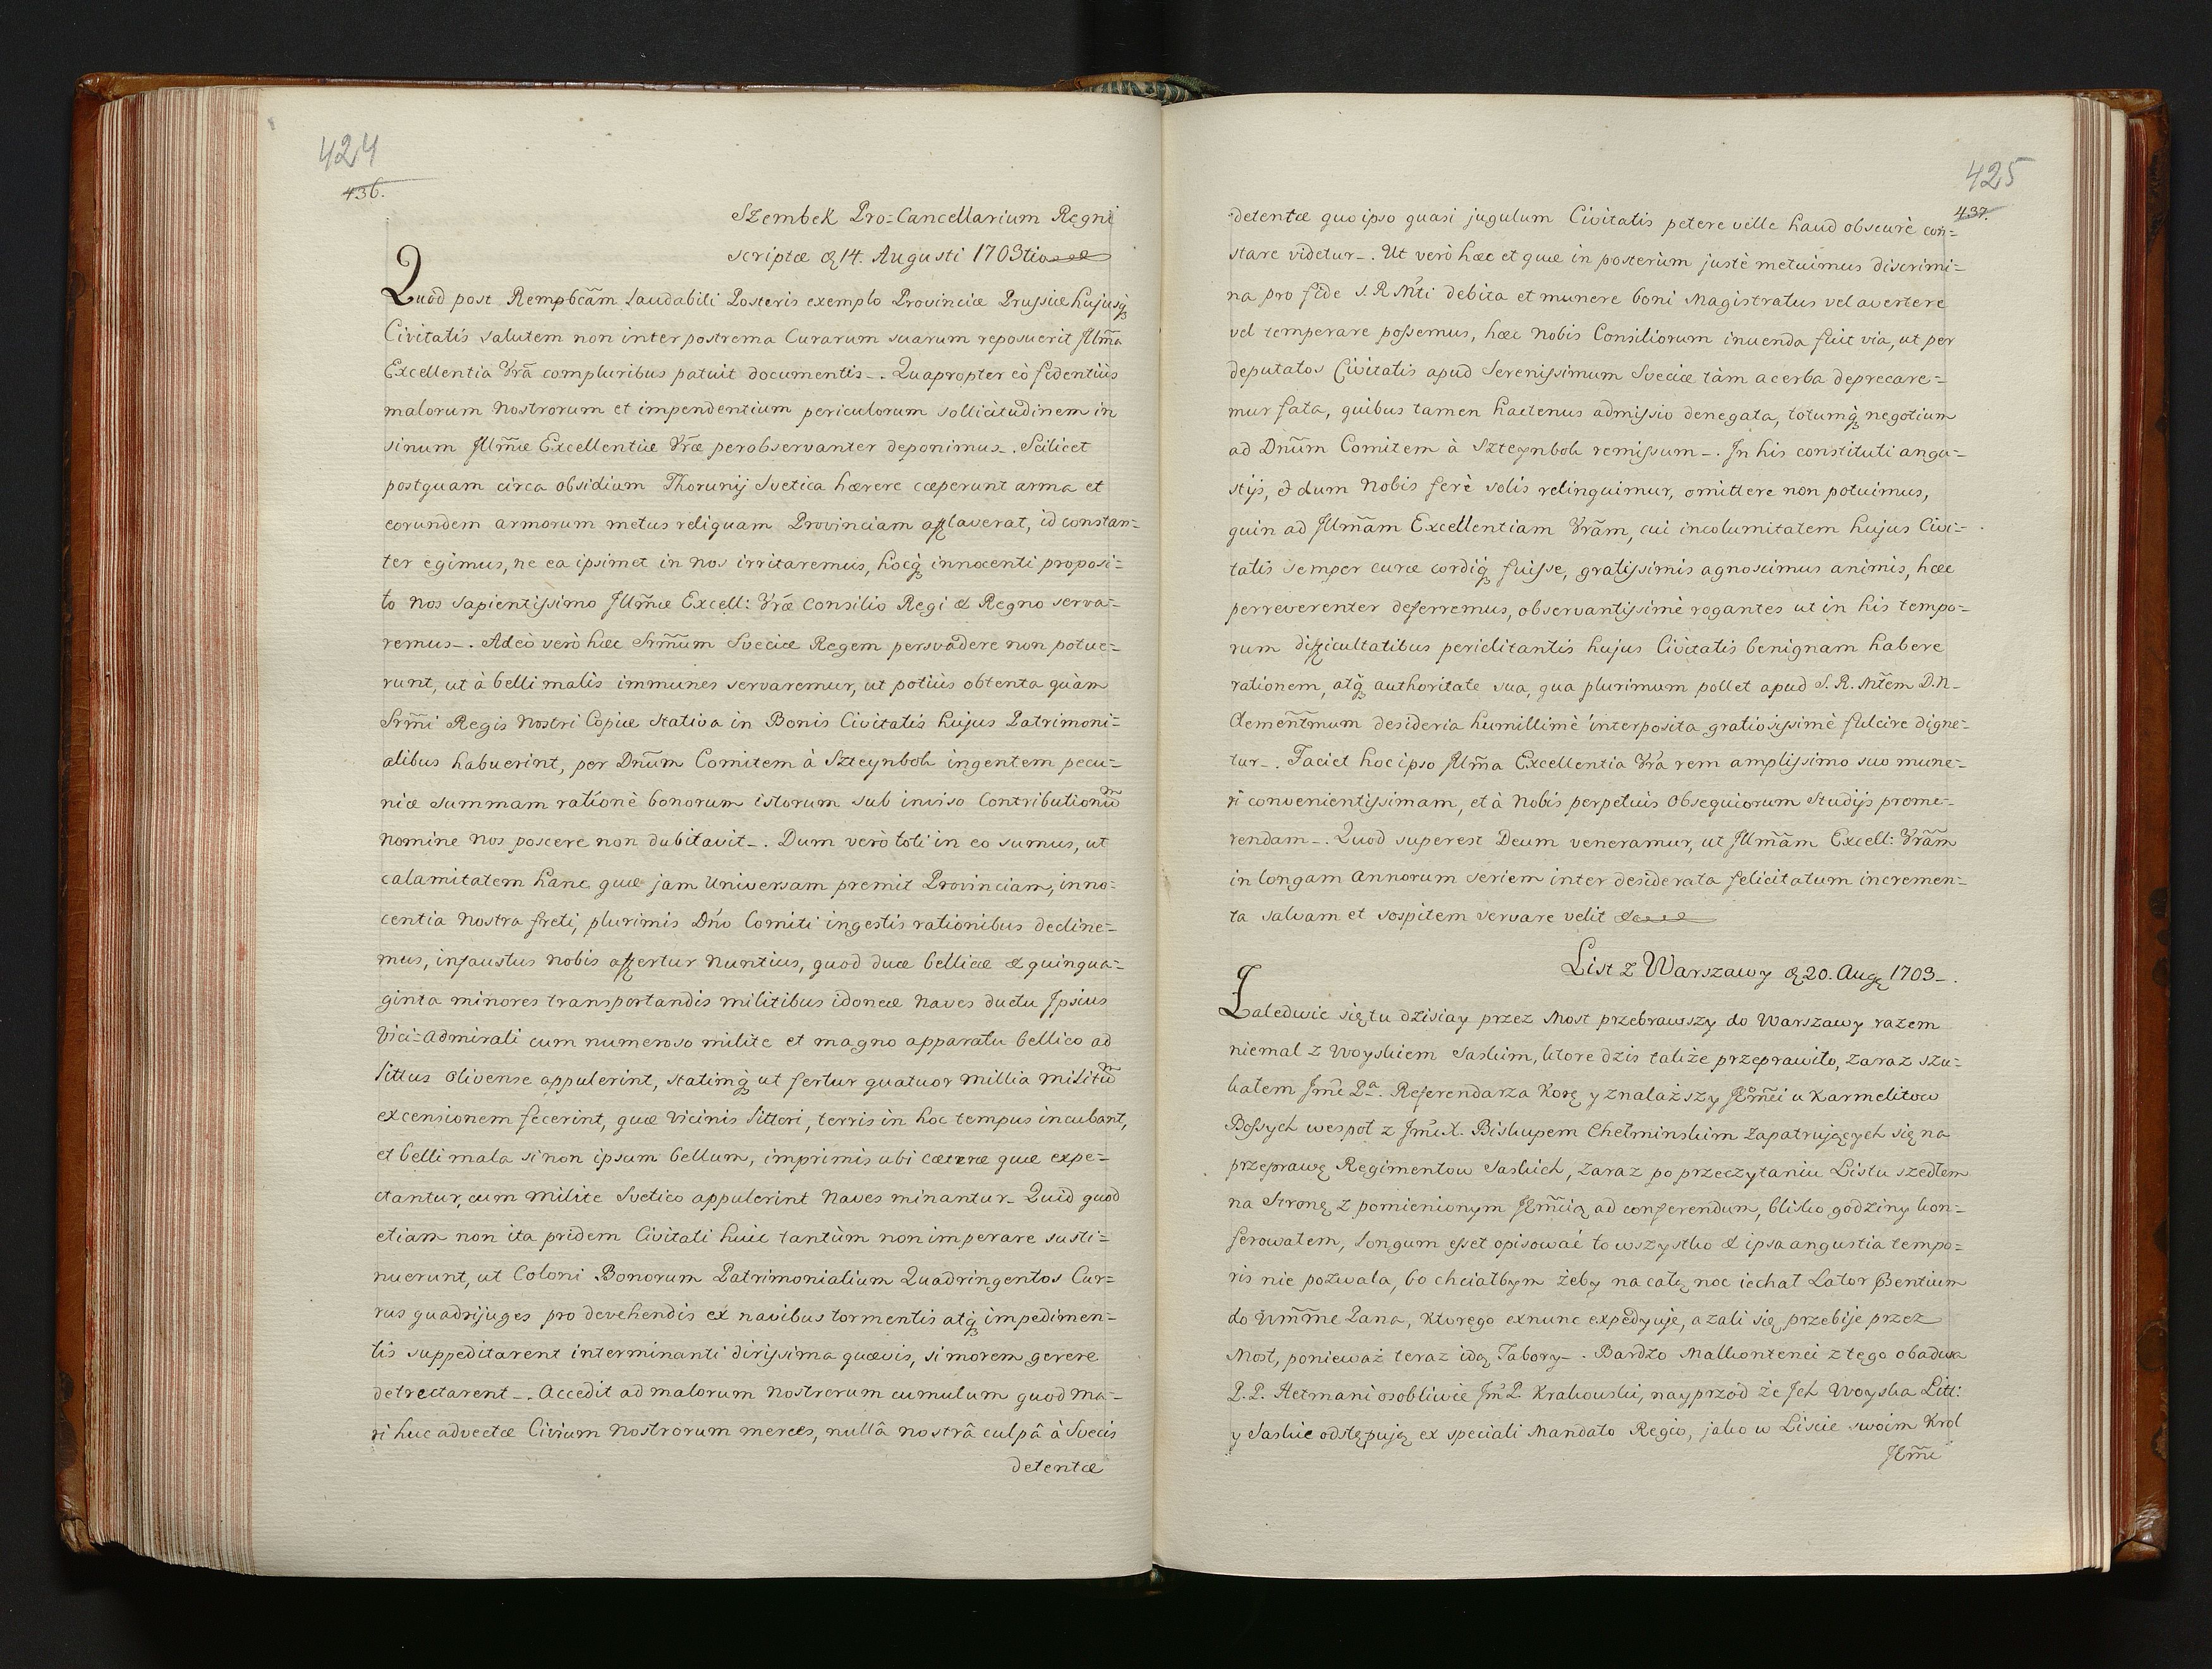 424
436.
Szembek Pro-Cancellarium Regni
scriptæ d. 14. Augusti 1703tio
Quod post Rempbcãm laudabili Posteris exemplo Provinciæ Prussiæ hujusq́
Civitatis salutem non inter postrema Curarum suarum reposuerit Jllm̃a
Excellentia Vr̃a compluribus patuit documentis. Quapropter eò fidentiùs
malorum nostrorum et impendentium periculorum sollicitudinem in
sinum Jllm̃æ Excellentiæ Vr̃æ perobservanter deponimus. Scilicet
postquam circa obsidium Thorunij Svetica hærere cæperunt arma et
eorundem armorum metus reliquam Provinciam afflaverat, id constan=
ter egimus, ne ea ipsimet in nos irritaremus, hocq́ innocenti proposi=
to nos sapientissimo Jllm̃æ Excell: Vr̃æ consilio Regi & Regno serva=
remus. Adeò verò hæc Srm̃um Sveciæ Regem persvadere non potue=
runt, ut à belli malis immunes servaremur, ut potiùs obtenta quàm
Srm̃i Regis Nostri Copiæ stativa in Bonis Civitatis hujus Patrimoni=
alibus habuerint, per Dnũm Comitem à Szteynbok ingentem pecu=
niæ summam rationè bonorum istorum sub inviso Contributionũm
nomine nos poscere non dubitavit. Dum verò toti in eo sumus, ut
calamitatem hanc quæ jam Universam premit Provinciam, inno=
centia nostra freti, plurimis Dńo Comiti ingestis rationibus decline=
mus, infaustus nobis affertur nuntius, quod duæ bellicæ & quinqua=
ginta minores transportandis militibus idoneæ naves ductu Jpsius
Vici=Admirali cum numeroso milite et magno apparatu bellico ad
littus Olivense appulerint, statimq́ ut fertur quatuor millia militũm
excensionem fecerint, quæ vicinis litteri, terris in hoc tempus incubant,
et belli mala si non ipsum bellum, imprimis ubi cæteræ quæ expe=
ctantur, cum milite Svetico appulerint Naves minantur. Quid quod
etiam non ita pridem Civitati huic tantùm non imperare susti=
nuerunt, ut Coloni Bonorum Patrimonialium Quadringentos Cur=
rus quadrijuges pro devehendis ex navibus tormentis atq́ impedimen=
tis suppeditarent interminanti dirissima quævis, si morem gerere
detrectarent. Accedit ad malorum nostrorum cumulum quod ma=
ri huc advectæ Civium nostrorum merces, nullâ nostrâ culpâ à Svecis
detentæ
425
437.
detentæ quo ipso quasi jugulum Civitatis petere velle haud obscurè con=
stare videtur. Ut verò hæc et quæ in posterùm justè metuimus discrimi=
na pro fide S. R. Mti debita et munere boni Magistratus vel avertere
vel temperare possemus, hæc nobis Consiliorum inuenda fuit via, ut per
deputatos Civitatis apud Serenissimum Sveciæ tàm acerba deprecare=
mur fata, quibus tamen hactenus admissio denegata, totumq́ negotium
ad Dnũm Comitem à Szteynbok remissum. Jn his constituti angu=
stijs, & dum nobis ferè solis relinquimur, omittere non potuimus,
quin ad Jllm̃am Excellentiam Vr̃am, cui incolumitatem hujus Civi=
tatis semper curæ cordiq́ fuisse, gratissimis agnoscimus animis, hæc
perreverenter deferremus, observantissimè rogantes ut in his tempo=
rum difficultatibus periclitantis hujus Civitatis benignam habere
rationem, atq́ authoritate sua, qua plurimum pollet apud S. R. Mtẽm D. N.
Clementm̃um desideria humillimè interposita gratiosissimè fulcire digne=
tur. Faciet hoc ipso Jllm̃a Excellentia Vr̃a rem amplissimo suo mune=
ri convenientissimam, et à nobis perpetuis obsequiorum studijs prome=
rendam. Quod superest Deum veneramur, ut Jllm̃am Excell: Vr̃am
in longam annorum seriem inter desiderata felicitatum incremen=
ta salvam et sospitem servare velit &c
List z Warszawy d. 20. Aug. 1703.
Zaledwie się tu dzisiay przez Most przebrawszy do Warszawy razem
niemal z Woyskiem Saskim, ktore dzis także przeprawiło, zaraz szu=
kałem Jm̃ci Pa. Referendarza Korę y znalazszy Jem̃ci u Karmelitow
Bossych wespoł z Jm̃c X. Biskupem Chełminskim zapatruiących się na
przeprawę Regimentow Saskich, zaraz po przeczytaniu Listu szedłem
na Stronę z pomienionym Jem̃cią ad conferendum, blisko godziny kon=
ferowałem, longum esset opisować to wszystko & ipsa angustia tempo=
ris nie pozwala, bo chciałbym żeby na całę noc iechał Lator Pæntium
do Wm̃me Pana, ktorego exnunc expedyuię, azali się przebije przez
Most, ponieważ teraz idą Tabory. Bardzo Malkontenci z tego obadwa
P. P. Hetmani osobliwie Jm̃ P. Krakowski, nayprzod że Jch Woyska Litt:
y Saskie odstępuią ex speciali Mandato Regio, jako w Liscie swoim Krol
Jem̃c